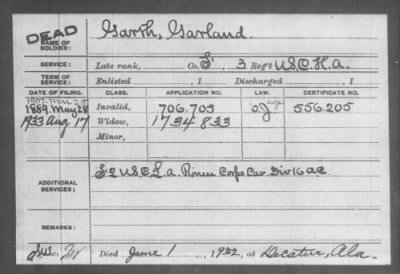 DEAD
NAME OF SOLDIER: Garth, Garland.
SERVICE: Late rank, Co. F, 3 Reg't U.S.C.H.A.
TERM OF SERVICE: Enlisted , 1 Discharged , 1
DATE OF FILING. CLASS. APPLICATION NO. LAW. CERTIFICATE NO.
1889 May 28 Invalid, 706.705 age 556.205
1933 Aug 17 Widow, 1734833
Minor,
ADDITIONAL SERVICES: Pioneer Corps Cav. Div 16 A.C.
REMARKS:
Died June 1, 1932, at Decatur, Ala.